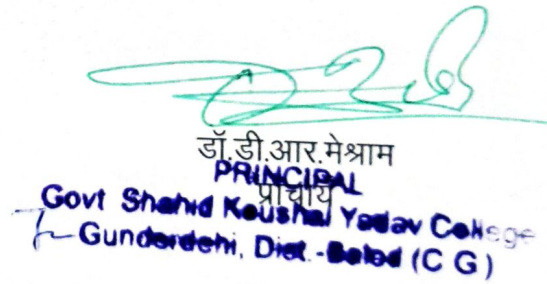 डॉ.डी.आर.मेश्राम
PRINCIPAL
प्राचार्य
Govt Shahid Koushal Yadav College
Gunderdehi, Dist.-Balod (C G)